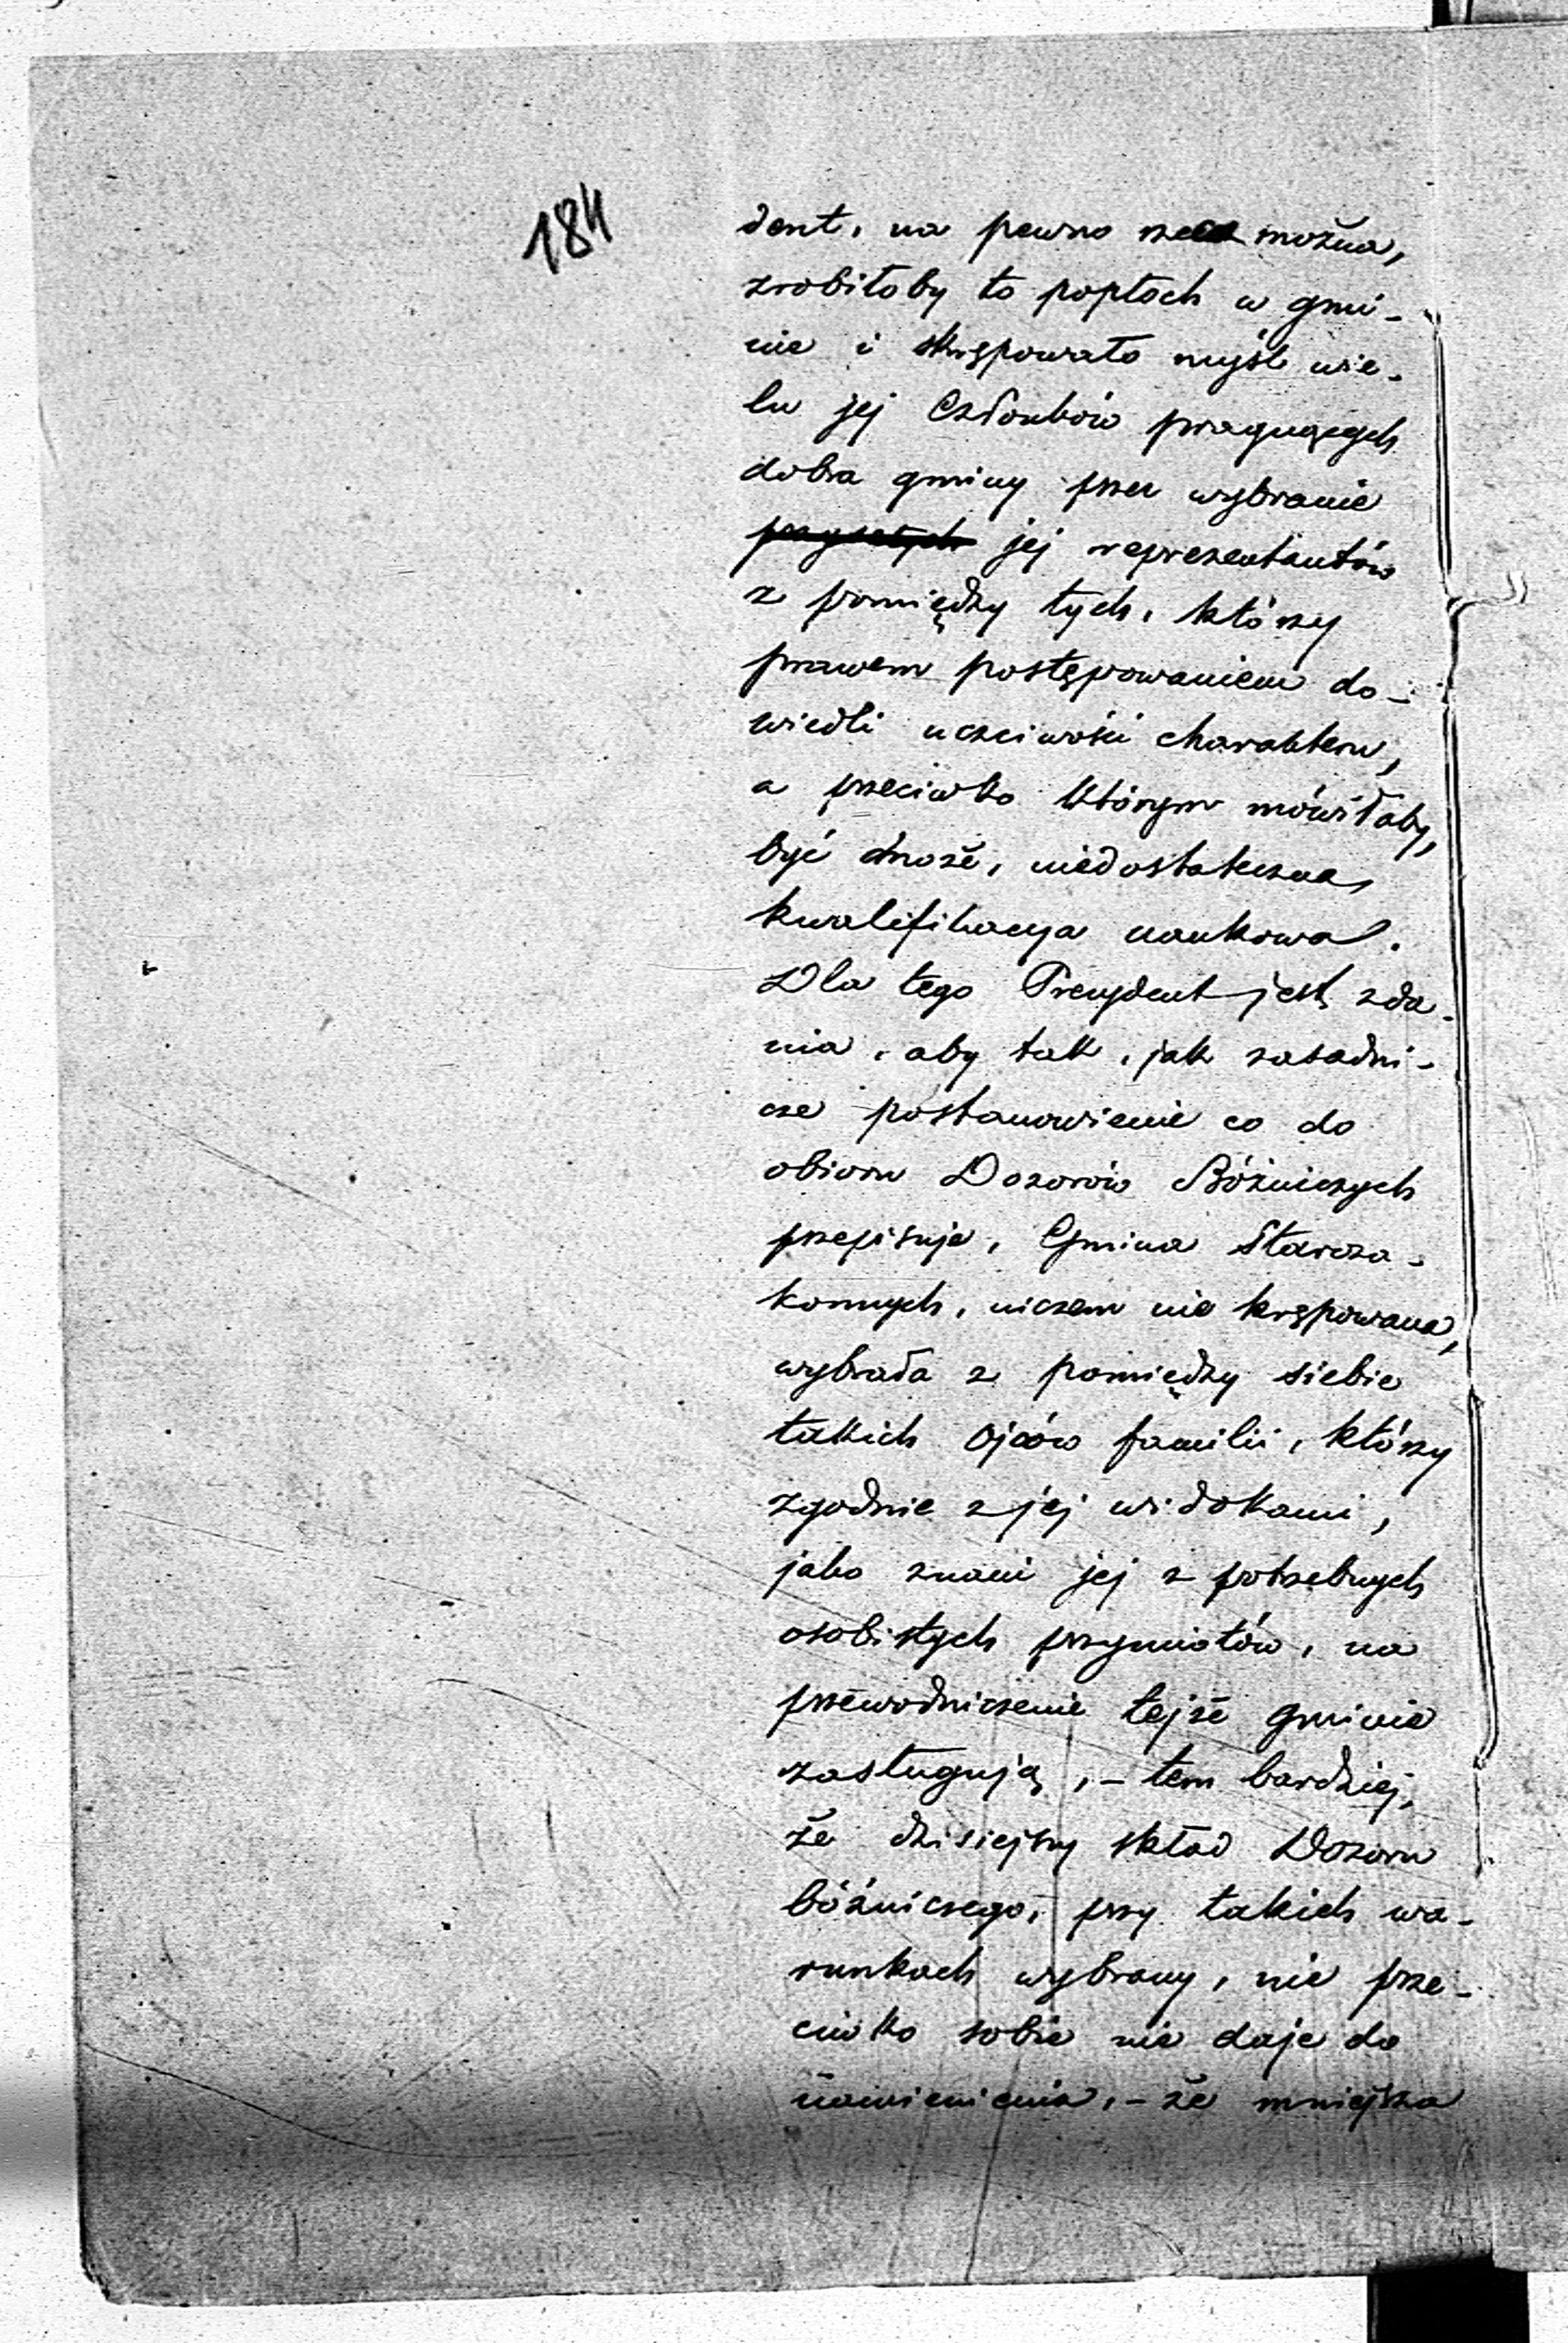 184
dent, na pewno rzec można,
zrobiłoby to popłoch w gmi-
nie i skrępowało myśl wie-
lu jej Członków pragnących
dobra gminy przez wybranie
przyszłych jej reprezentantów
z pomiędzy tych, którzy
prawem postępowaniem do-
wiedli uczciwości charakteru,
a przeciwko którym mówiłaby,
być może, niedostateczna,
kwalifikacya naukowa.
Dla tego Prezydent jest zda-
nia, aby tak, jak zasadni-
cze postanowienie co do
obioru Dozorów Bóżniczych
przepisuje, Gmina Staroza-
konnych, niczem nie krępowana,
wybrała z pomiędzy siebie
takich ojców familii, którzy
zgodnie z jej widokami,
jako znani jej z potrzebnych
osobistych przymiotów, na
przewodniczenie tejże gminie
zasługują, - tem bardziej,
że dzisiejszy skład Dozoru
bóżniczego, przy takich wa-
runkach wybrany, nic prze-
ciwko sobie nie daje do
nawienienia, - że mniejsza